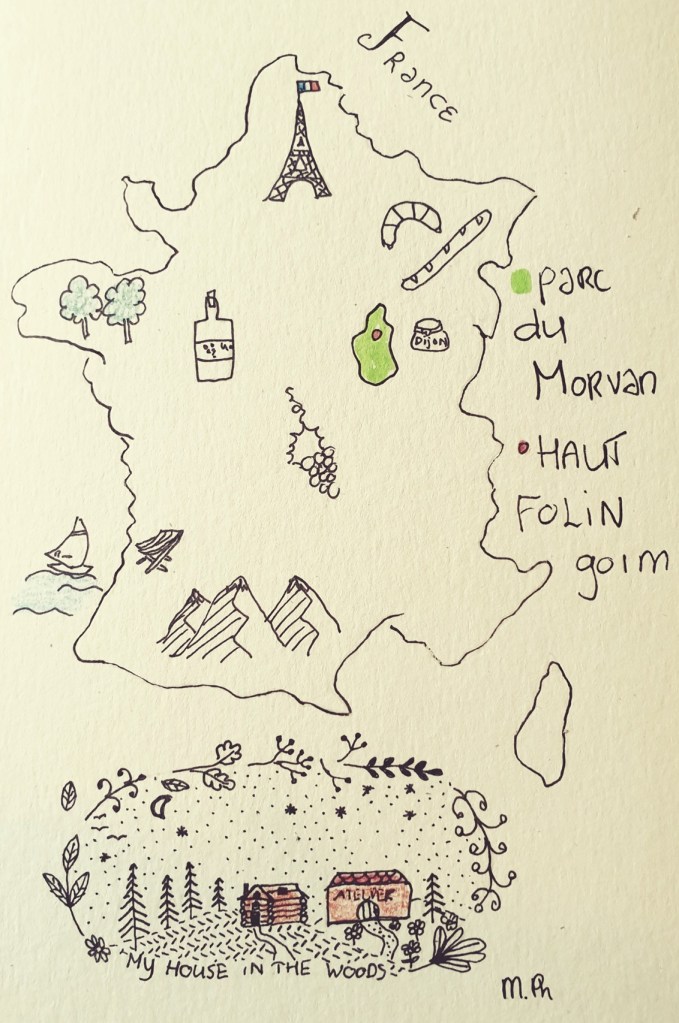 France
DIJON
PARC
du
MORVAN
HAUT
FOLIN
901m
ATELIER
MY HOUSE IN THE WOODS
M.Ph